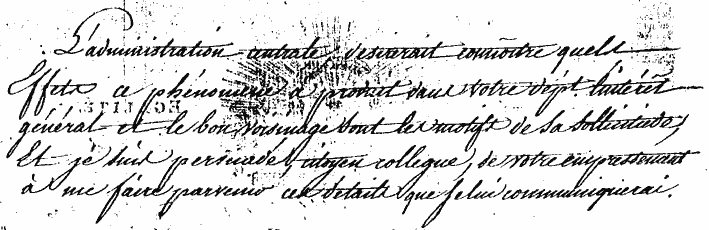 L'administration centrale desirerait connoître quels
Effets ce phénomene a produit dans votre dépt. L'intérêt
général et le bon voisinage sont les motifs de sa sollicitude;
Et je suis persuadé, citoyen collegue, de votre empressement
à me faire parvenir ces details que je lui communiquerai.